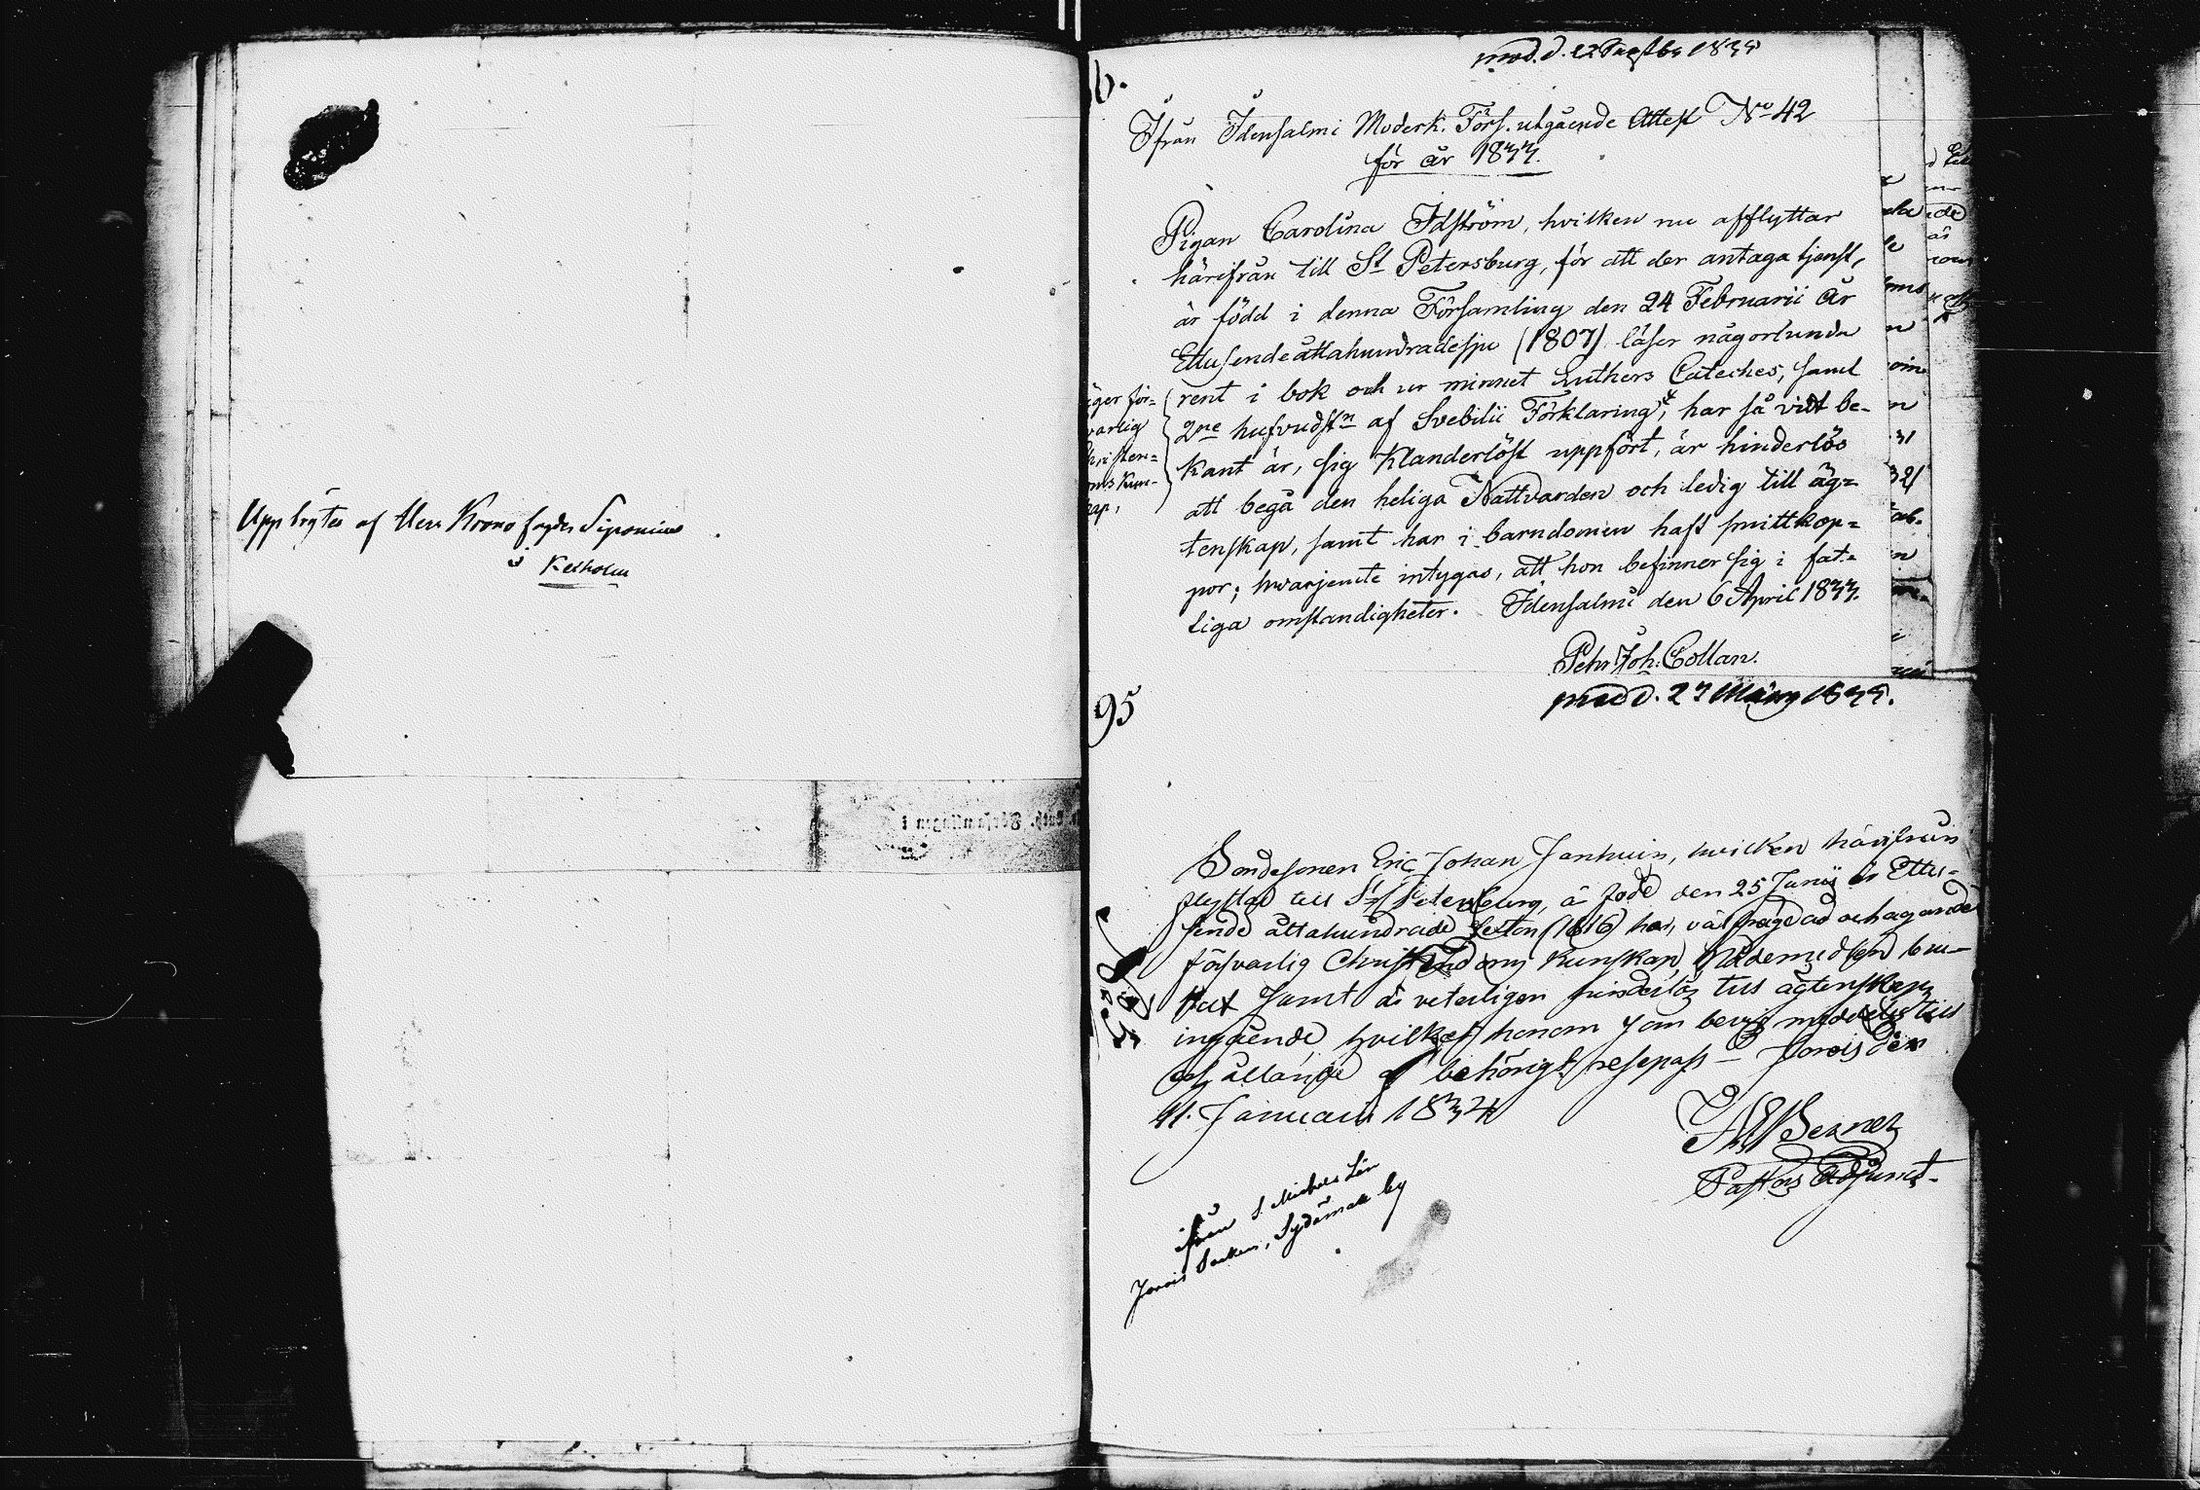 Uppbrytes af Herr Krono fogden Siponius
i Kexholm
prod. d. 1833
Ifrån Idensalmi Moderk. Förs. utgående Attest No 42
för år 1833.
Pigan Carolina Idström, hvilken nu afflyttar
härifrån till St Petersburg, för att der antaga tjenst,
är född i denna Församling den 24 Februarii År
Ettusendeåttahundradesju (1807) läser någorlunda
rent i bok och ur minnet Luthers Cateches, samt
2ne hufvudstn af Svebilii Förklaring, har så vidt be-
kant är, sig klanderlöst uppfört, är hinderlös
att begå den heliga Nattvarden och ledig till äg=
tenskap, samt har i barndomen haft smittkop=
por; hvarjemte intygas, att hon befinner sig i fat=
tiga omständigheter. Idensalmi den 6 April 1833.
Pehr Joh. Collan.
äger för=
varlig
hristen=
oms kun-
kap,
95
prod d. 27 Mars
Bondesonen Eric Johan Janhuin, hvilken härifrån
flyttar till St Petersburg, är född den 25 Junii år Ettu-
sende åttahundrade sexton (1816) har, välfrägdad och ägande
försvarlig Christendoms kunskap, Nådemedlen bru-
kat samt är veterligen hinderlös till ägtenskaps
ingående hvilket honom som bevis meddelas till
erhållande af behörigt respass — Jorois den
11. Januarii 1834
Pastors Adjunct.
ifrån S. Michels Län
Jorois Socken, Sydänmaa by